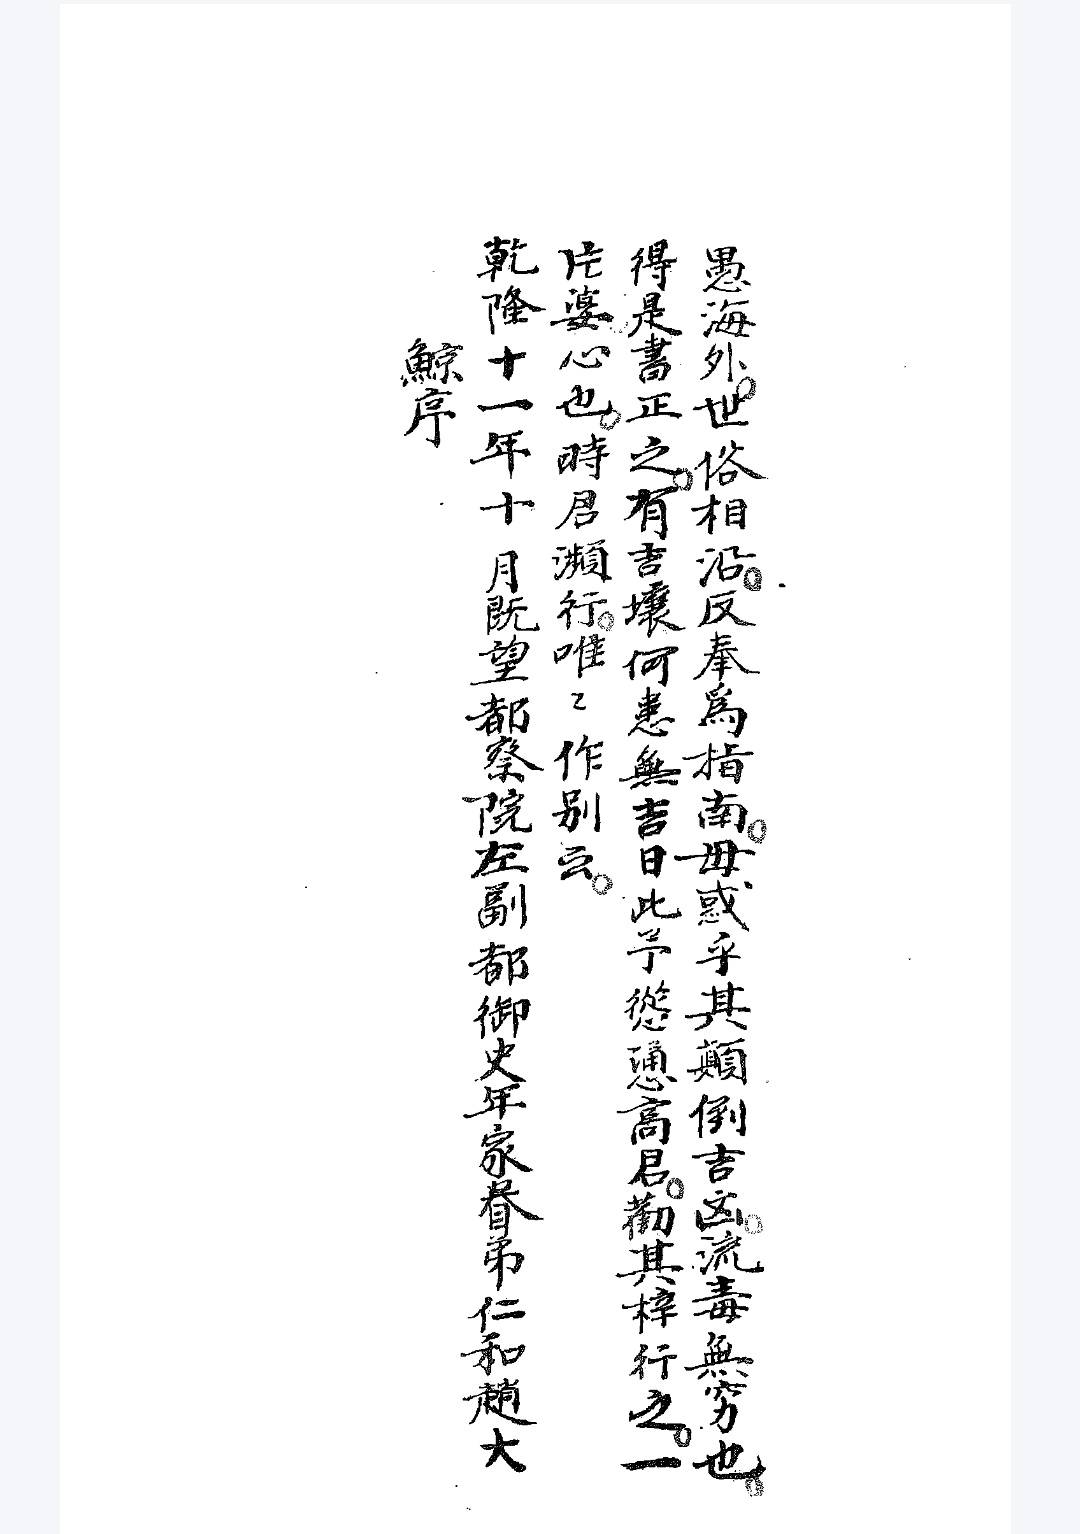 愚海外世俗相沿反奉為指南毋或乎其顛倒吉凶流毒無穷也
得是書正之有吉壤何患無吉日此予慫慂高君勸其梓行之一
片婆心也時君瀕行唯〻作别云
乾隆十一年十月既望都察院左副都御史年家眷弟仁和趙大
鯨序